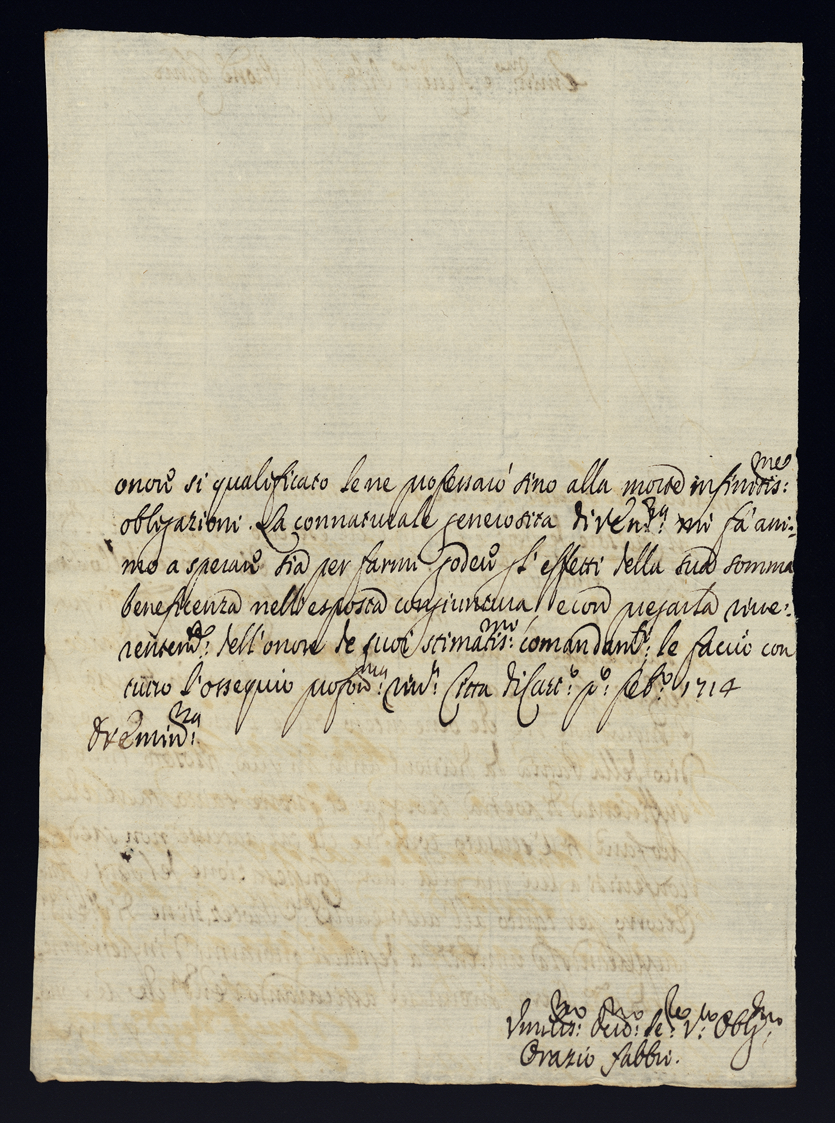 onore si qualificato le ne professarò sino alla morte infinitis:me
obligazioni. La connaturale generosita di V Em:za mi fà ani-
mo a sperare sia per farmi godere gl'effetti della sua somma
beneficenza nell'esposta congiuntura, e con pregarla rive-
rentem:e dell'onore de suoi stimatis:mi comandam:ti le faccio con
tutto l'ossequio profon:ma riv:a Citta di Cast:o p:o feb:o 1714
Di V Emin:za
Umilis:mo Dev:mo Se:re V:o Oblig:mo
Orazio Fabbri.